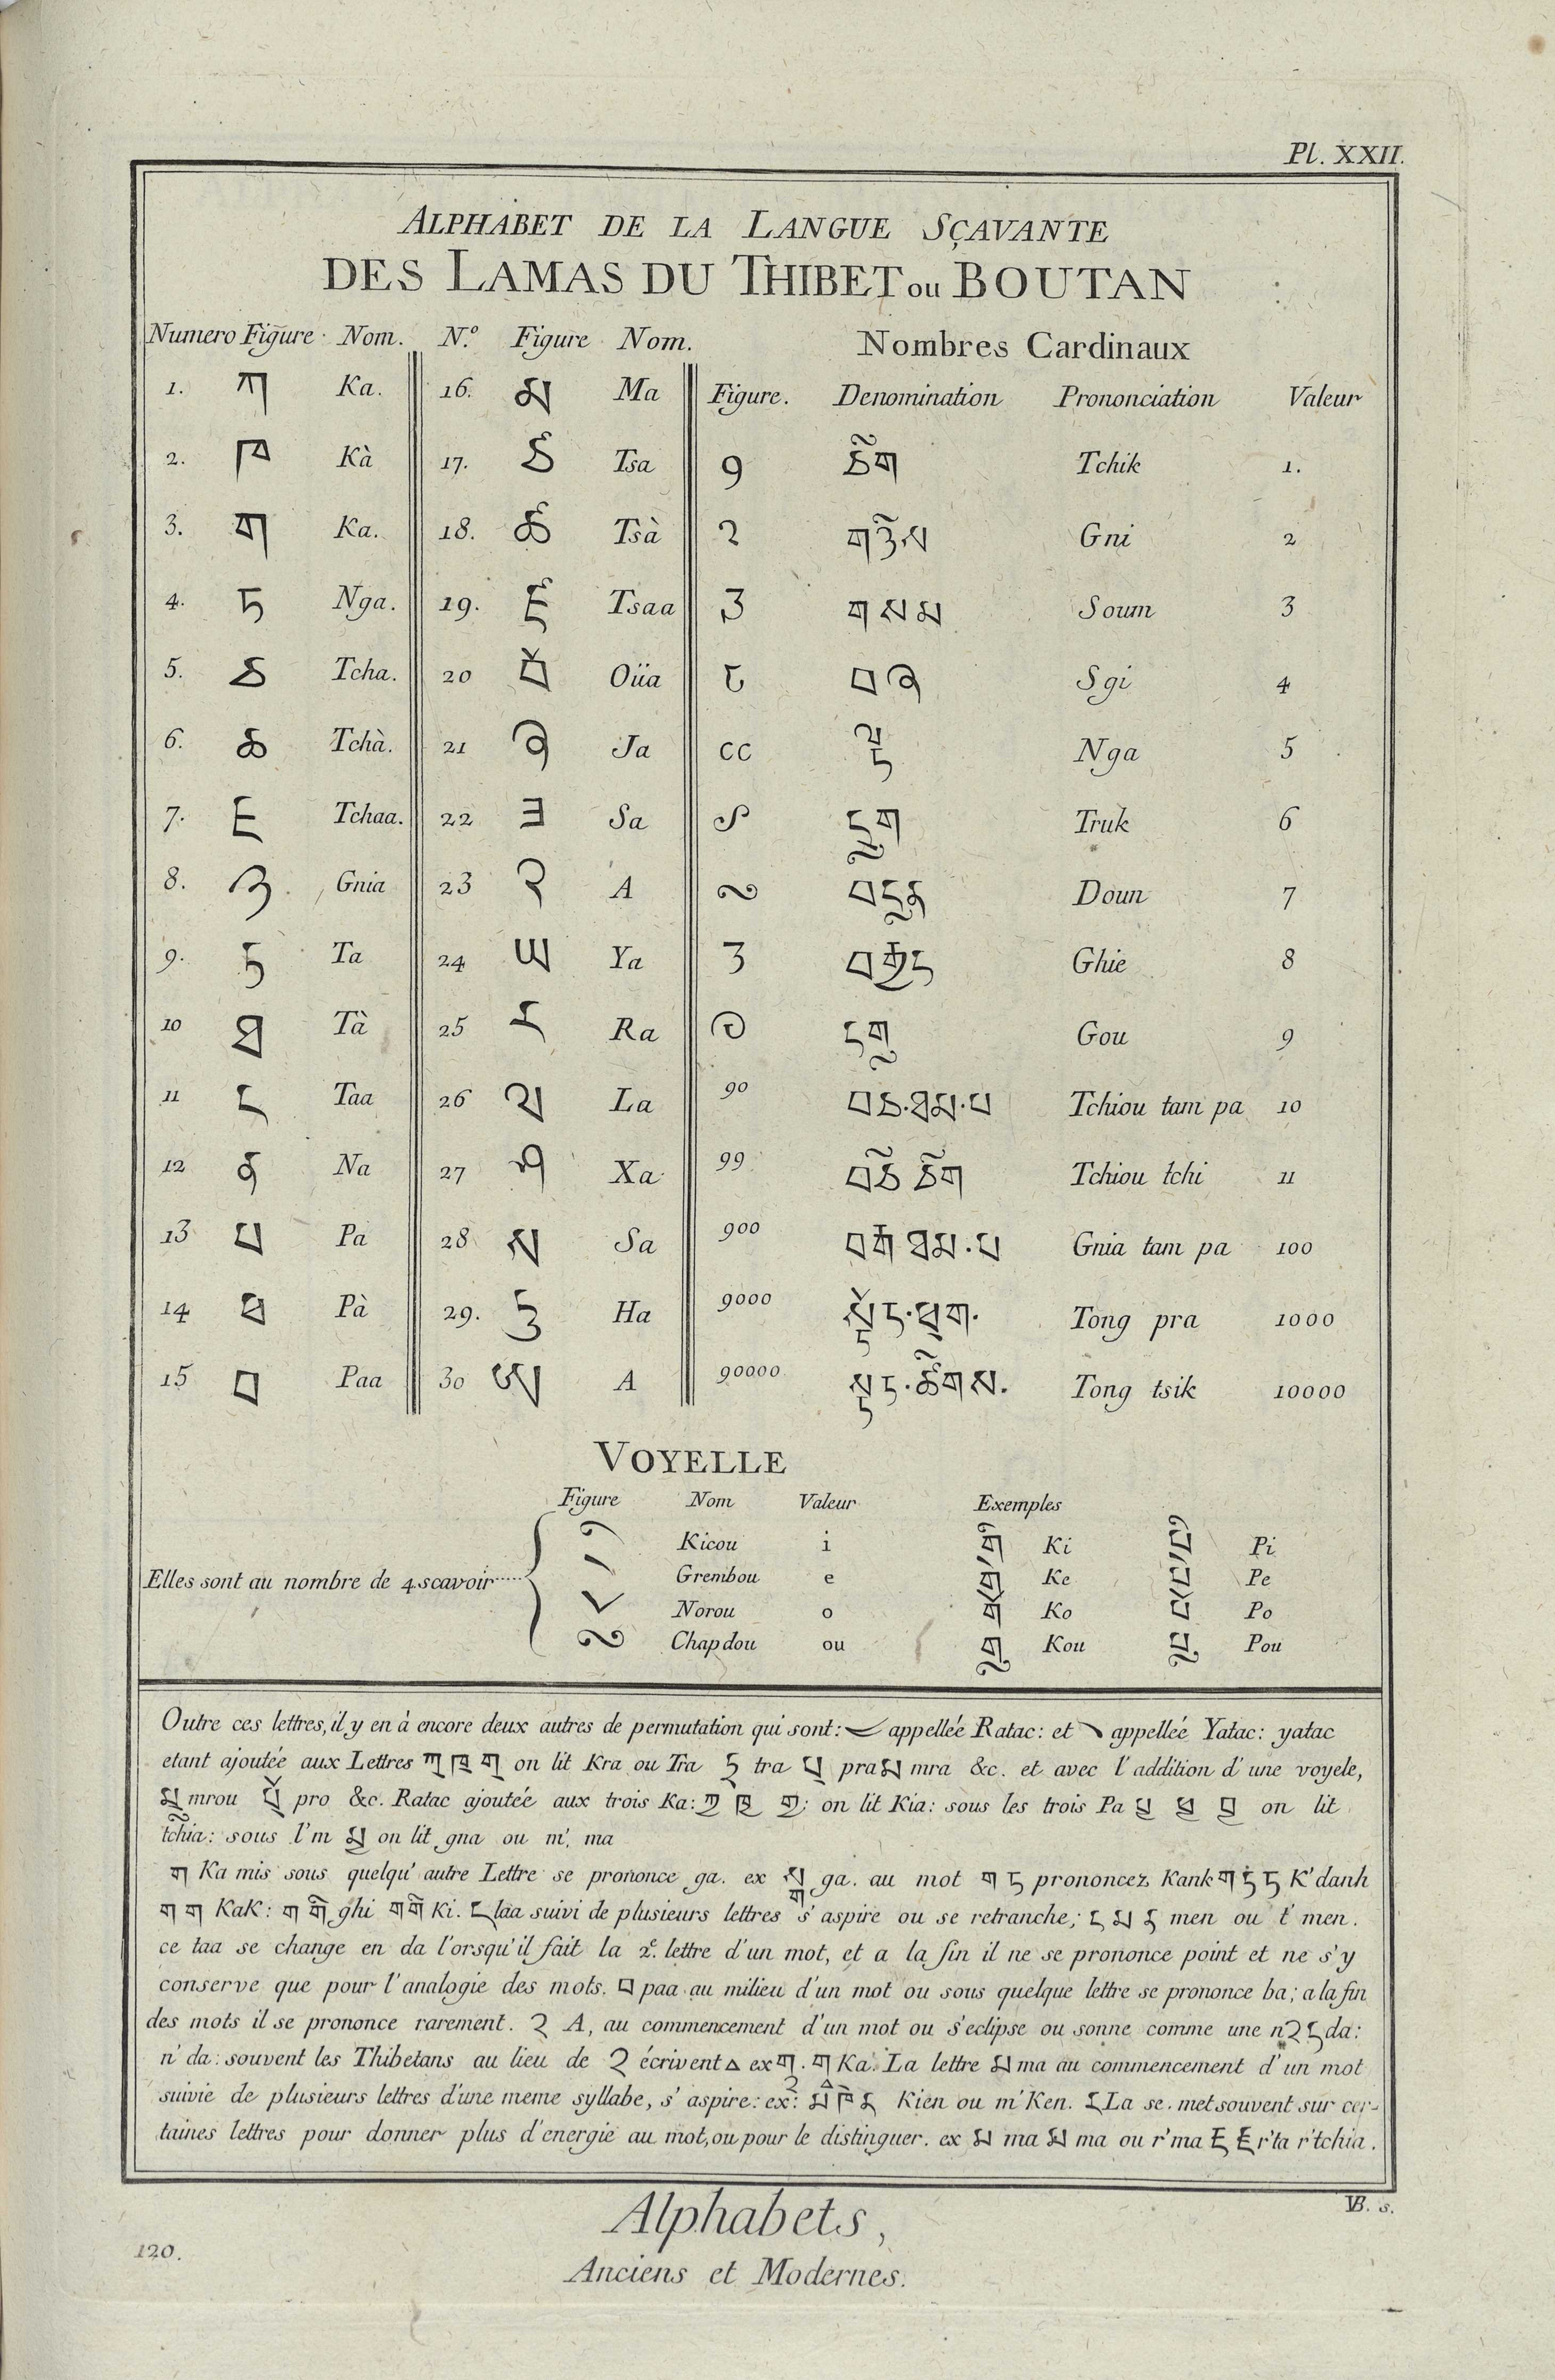 Pl. XXII.
ALPHABET DE LA LANGUE SÇAVANTE
DES LAMAS DU THIBET ou BOUTAN
Numero Figure Nom. N.º Figure Nom. Nombres Cardinaux
Figure. Denomination Prononciation Valeur
1. ཀ Ka. 16. མ Ma
2. ཁ Kà 17. ཙ Tsa 9 ཅིག Tchik 1.
3. ག Ka. 18. ཚ Tsà 2 གཉིས Gni 2
4. ང Nga. 19. ཛ Tsaa 3 གསམ Soum 3
5. ཅ Tcha. 20 ཝ Oüa བཞ Sgi 4
6. ཆ Tchà. 21 ཞ Ja ལྔ Nga 5
7. ཇ Tchaa. 22 ཟ Sa དྲུག Truk 6
8. ཉ Gnia 23 འ A བདུན Doun 7
9. ཏ Ta 24 ཡ Ya བརྒྱད Ghie 8
10 ཐ Tà 25 ར Ra དགུ Gou 9
11 ད Taa 26 ལ La 90 བཅ་ཐམ་པ Tchiou tam pa 10
12 ན Na 27 ཤ Xa 99 Tchiou tchi 11
13 པ Pa 28 ས Sa 900 Gnia tam pa 100
14 ཕ Pà 29. ཧ Ha 9000 Tong pra 1000
15 བ Paa 30 ཨ A 90000 Tong tsik 10000
VOYELLE
Figure Nom Valeur Exemples
Kicou i Ki Pi
Elles sont au nombre de 4. scavoir Grembou e Ke Pe
Norou o Ko Po
Chapdou ou Kou Pou
Outre ces lettres, il y en à encore deux autres de permutation qui sont: appellée Ratac: et appellée Yatac: yatac
etant ajoutée aux Lettres on lit Kra ou Tra tra pra mra &c. et avec l'addition d'une voyele,
mrou pro &c. Ratac ajoutée aux trois Ka: on lit Kia: sous les trois Pa on lit
tchia: sous l'm on lit gna ou m'. ma
ག Ka mis sous quelqu'autre Lettre se prononce ga. ex ga. au mot ག ང prononcez Kank K'danh
ག ག KaK: ghi Ki. laa suivi de plusieurs lettres s'aspire ou se retranche; ད མ ན men ou t'men.
ce taa se change en da l'orsqu'il fait la 2.e lettre d'un mot, et a la fin il ne se prononce point et ne s'y
conserve que pour l'analogie des mots. བ paa au milieu d'un mot ou sous quelque lettre se prononce ba; a la fin
des mots il se prononce rarement. འ A, au commencement d'un mot ou s'eclipse ou sonne comme une n འ ད da:
n'da: souvent les Thibetans au lieu de འ écrivent ▵ ex Ka. La lettre མ ma au commencement d'un mot
suivie de plusieurs lettres d'une meme syllabe, s'aspire: ex: Kien ou m'Ken. La se. met souvent sur cer-
taines lettres pour donner plus d'energie au mot, ou pour le distinguer. ex མ ma ma ou r'ma r'ta r'tchia.
B. s.
Alphabets,
120.
Anciens et Modernes.